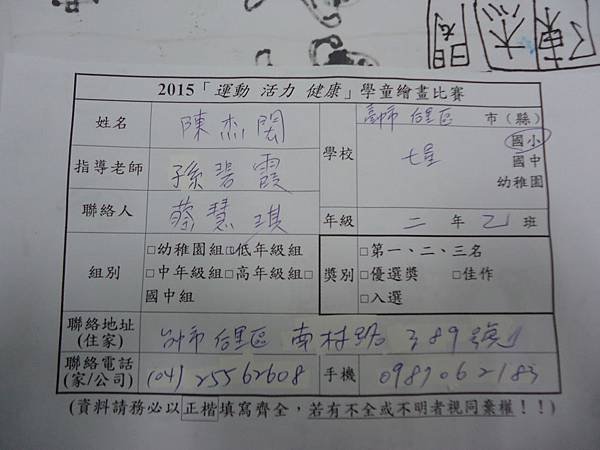 2015「運動 活力 健康」學童繪畫比賽
姓名 陳杰閔 學校 台中市 后里區 市(縣)
七星 國小
國中
幼稚園
指導老師 孫碧霞
聯絡人 蔡慧琪 年級 二 年 乙 班
組別 □幼稚園組□低年級組
□中年級組□高年級組□
國中組
獎別 □第一、二、三名
□優選獎 □佳作
□入選
聯絡地址
(住家) 台中市 后里區 南村路 389號
聯絡電話
(家/公司) (04) 25562608 手機 0987062183
(資料請務必以正楷填寫齊全,若有不全或不明者視同棄權!!)